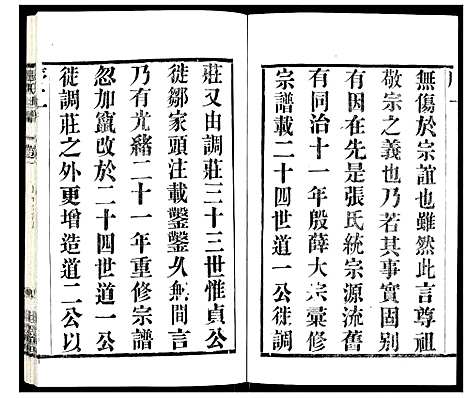 無傷於宗謹也雖然此言尊祖
敬宗之義也乃若其事實固别
有因在先是張氏統宗源流舊
有同治十一年殷薛大宗彙修
宗譜載二十四世道一公徙調
莊又由調莊三十三世惟貞公
徙鄒家頭注載鑿鑿久無間言
乃有光緒二十一年重修宗譜
忽加竄改於二十四世道一公
徙調莊之外更增造道二公以